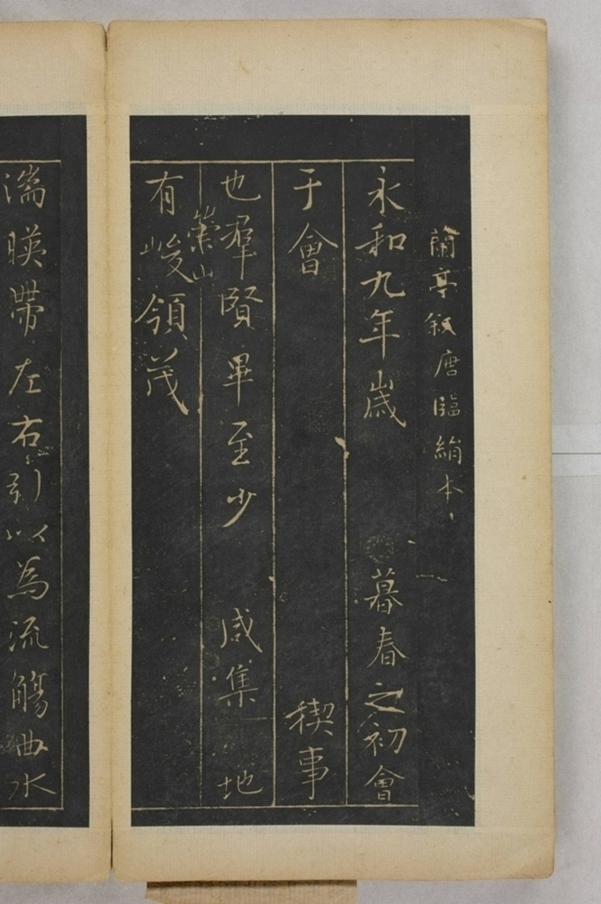 蘭亭叙唐臨絹本
永和九年歲暮春之初會
于會稧事
也羣賢畢至少咸集地
有崇山峻領茂
湍暎帶左右引以為流觴曲水